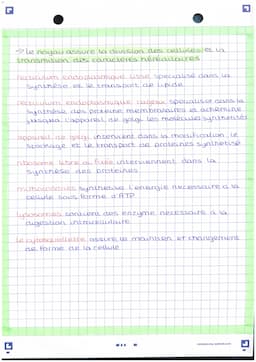 → le noyau assure la division des cellules et la
transmition des caractères héréditaires
réticulum endoplasmique lisse spécialisé dans la
synthèse et le transport de lipide
réticulum endoplasmique spécialisé dans la
synthèse des protéine membranaires et achemine
jusqu'à l'appareil de golgi les molécules synthétisés
appareil de golgi intervient dans la modification le
stockage et le transport de protéines synthétisé
ribosome libre ou fixée interviennent dans la
synthèse des protéines
mitochondries synthétise l'énergie nécessaire à la
cellule sous forme d'ATP
lysosomes contient des enzyme nécessaire à la
digestion intracellulaire
le cytosquelette assure le maintien et changement
de forme de la cellule